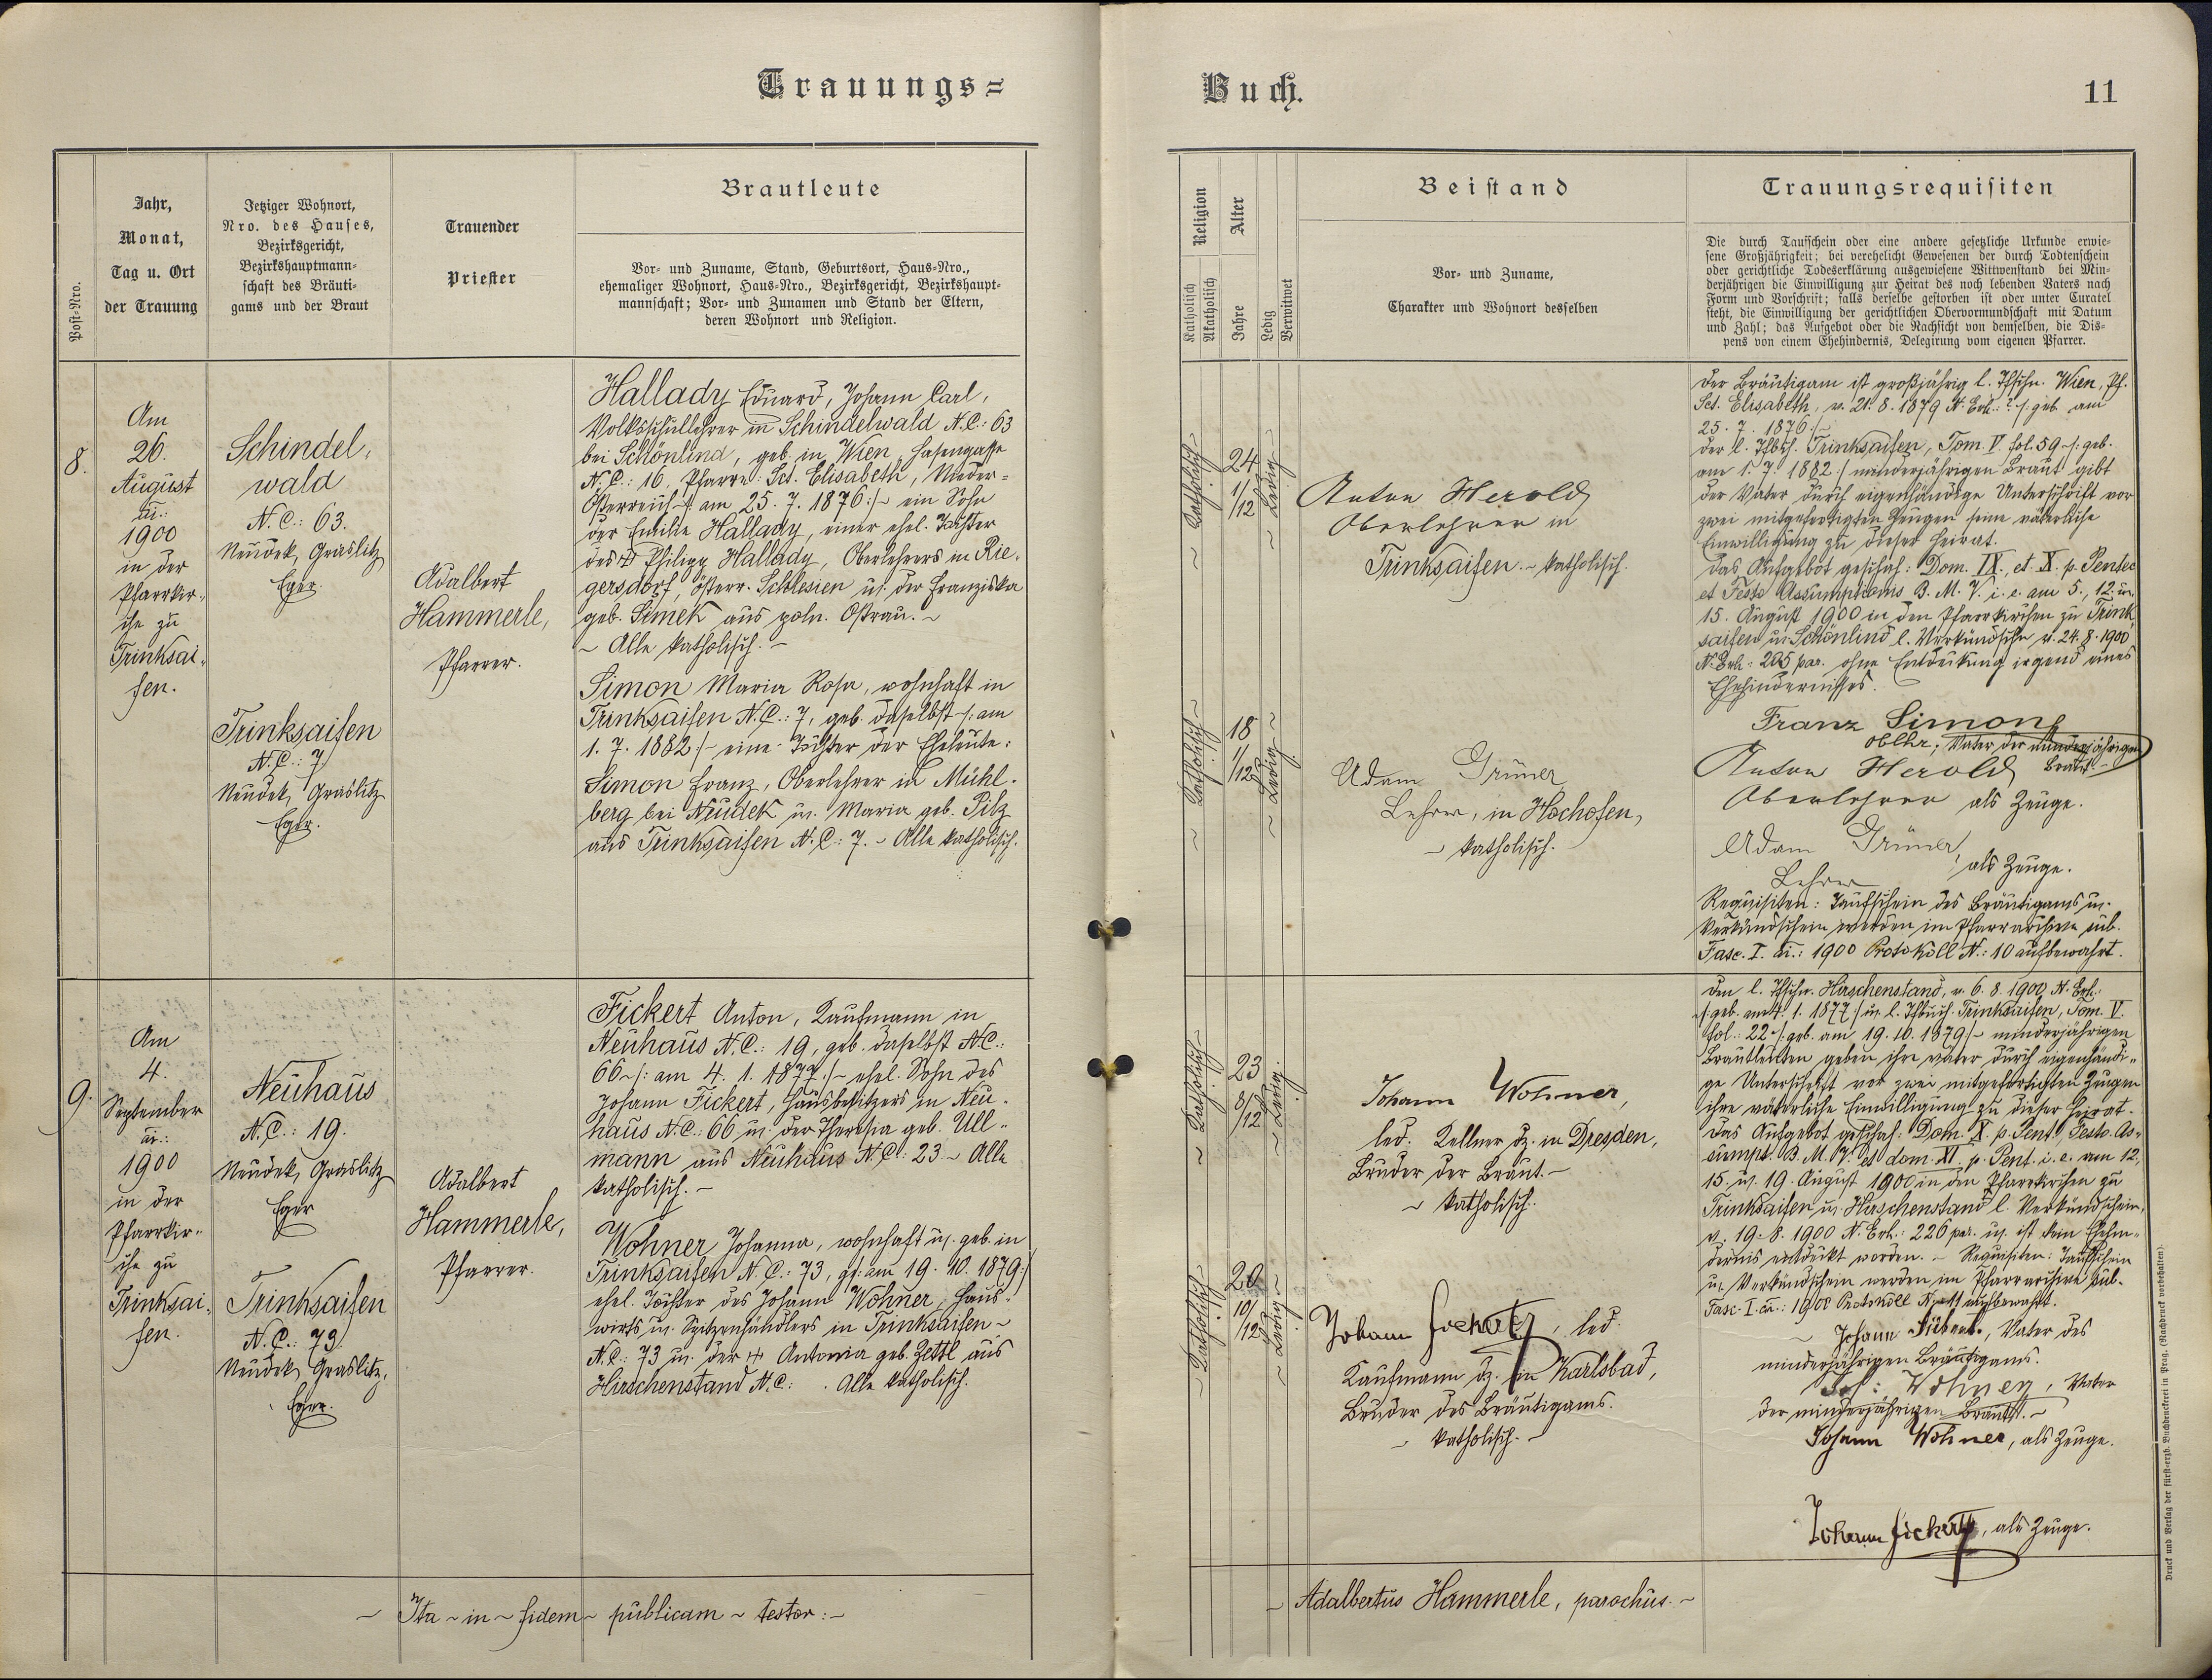 Trauungs=
Buch.
11
Post-Nro.
Jahr,
Monat,
Tag u. Ort
der Trauung
Jetziger Wohnort,
Nro. des Hauses,
Bezirksgericht,
Bezirkshauptmann=
schaft des Bräuti=
gams und der Braut
Trauender
Priester
Brautleute
Vor- und Zuname, Stand, Geburtsort, Haus-Nro.,
ehemaliger Wohnort, Haus-Nro., Bezirksgericht, Bezirkshaupt=
mannschaft; Vor- und Zunamen und Stand der Eltern,
deren Wohnort und Religion.
Religion
Katholisch
Akatholisch
Alter
Jahre
Ledig
Verwitwet
Beistand
Vor- und Zuname,
Charakter und Wohnort desselben
Trauungsrequisiten
Die durch Taufschein oder eine andere gesetzliche Urkunde erwie=
sene Großjährigkeit; bei verehelicht Gewesenen der durch Todtenschein
oder gerichtliche Todeserklärung ausgewiesene Wittwenstand bei Min=
derjährigen die Einwilligung zur Heirat des noch lebenden Vaters nach
Form und Vorschrift; falls derselbe gestorben ist oder unter Curatel
steht, die Einwilligung der gerichtlichen Obervormundschaft mit Datum
und Zahl; das Aufgebot oder die Nachsicht von demselben, die Dis=
pens von einem Ehehindernis, Delegirung vom eigenen Pfarrer.
8.
Am
26.
August
ai.:
1900
in der
Pfarrkir=
che zu
Trinksai=
fen.
Schindel=
wald
N.C.: 63.
Neudek, Graslitz
Eger.
Trinksaifen
N.C.: 7
Neudek, Graslitz
Eger.
Adalbert
Hammerle,
Pfarrer.
Hallady Eduard, Johann Carl,
Volksschullehrer in Schindelwald N.C.: 63
bei Schönlind, geb. in Wien, Hasengasse
N.C.: 16, Pfarre: Sct. Elisabeth, Nieder=
Österreich /: am 25. 7. 1876 :/ ~ ein Sohn
der Emilie Hallady, einer ehel. Tochter
des + Philipp Hallady, Oberlehrers in Rie=
gersdorf, österr. Schlesien u. der Franziska
geb. Simek aus poln. Ostrau. ~
~ Alle katholisch. ~
Simon Maria Rosa, wohnhaft in
Trinksaifen N.C.: 7, geb. daselbst /: am
1. 7. 1882 :/ ~ eine Tochter der Eheleute:
Simon Franz, Oberlehrer in Mühl=
berg bei Neudek u. Maria geb. Pilz
aus Trinksaifen N.C.: 7. ~ Alle katholisch.
~ Katholisch ~
24
1/12
~ Ledig ~
~ Katholisch ~
18
1/12
~ Ledig ~
Anton Herold
Oberlehrer in
Trinksaifen. ~ katholisch.
Adam Grüner
Lehrer, in Hochofen,
~ katholisch.
Der Bräutigam ist großjährig l. Tfschn. Wien, Pf.
Sct. Elisabeth, v. 21. 8. 1879 N. Exh.: ? /: geb. am
25. 7. 1876 :/
Der l. Tfbch. Trinksaifen, Tom. V. fol. 59 ~ /: geb.
am 1. 7. 1882 :/ minderjährigen Braut gibt
der Vater durch eigenhändige Unterschrift vor
zwei mitgefertigten Zeugen seine väterliche
Einwilligung zu dieser Heirat.
Das Aufgebot geschah: Dom. IX. et X. p. Pentec.
et Festo Assumptionis B. M. V. i. e. am 5., 12. u.
15. August 1900 in den Pfarrkirchen zu Trink=
saifen u. Schönlind l. Verkündschn. v. 24. 8. 1900
N. Exh.: 205 par. ohne Entdeckung irgend eines
Ehehindernisses.
Franz Simon
oblhr, Vater der minderjährigen
Braut.
Anton Herold
Oberlehrer als Zeuge.
Adam Grüner,
Lehrer als Zeuge.
Requisiten: Taufschein des Bräutigams u.
Verkündschein werden im Pfarrarchive sub.
Fasc. I. ai.: 1900 Protokoll N.: 10 aufbewahrt.
9.
Am
4.
September
ai.:
1900
in der
Pfarrkir=
che zu
Trinksai=
fen.
Neuhaus
N.C.: 19.
Neudek, Graslitz
Eger
Trinksaifen
N.C.: 73.
Neudek, Graslitz,
Eger.
Adalbert
Hammerle,
Pfarrer.
Fickert Anton, Kaufmann in
Neuhaus N.C.: 19, geb. daselbst N.C.:
66 ~ /: am 4. 1. 1877 :/ ~ ehel. Sohn des
Johann Fickert, Hausbesitzers in Neu=
haus N.C.: 66 u. der Theresia geb. Ull=
mann aus Neuhaus N.C.: 23 ~ Alle
katholisch. ~
Wohner Johanna, wohnhaft u. geb. in
Trinksaifen N.C.: 73, am 19. 10. 1879 :/
ehel. Tochter des Johann Wohner, Haus=
wirts u. Spitzenhändlers in Trinksaifen ~
N.C.: 73 u. der + Antonia geb. Zettl aus
Hirschenstand N.C.: . Alle katholisch.
~ Katholisch ~
23
8/12
~ Ledig ~
~ Katholisch ~
20
10/12
~ Ledig ~
Johann Wohner,
led. Kellner dz. in Dresden,
Bruder der Braut. ~
~ katholisch.
Johann Fickert, led.
Kaufmann dz. in Karlsbad,
Bruder des Bräutigams.
~ katholisch. ~
Den l. Tfschn. Hirschenstand, v. 6. 8. 1900 N. Exh.:
/: geb. am 4. 1. 1877 :/ u. l. Tfbuch. Trinksaifen, Tom. V.
fol.: 22 ~ /: geb. am 19. 10. 1879 :/ ~ minderjährigen
Brautleuten geben ihre Väter durch eigenhändi=
ge Unterschrift vor zwei mitgefertigten Zeugen
ihre väterliche Einwilligung zu dieser Heirat.
Das Aufgebot geschah: Dom. X. p. Pent., Festo As=
sumpt. B. M. V. et dom. XI. p. Pent. i. e. am 12.,
15. u. 19. August 1900 in den Pfarrkirchen zu
Trinksaifen u. Hirschenstand l. Verkündschein,
v. 19. 8. 1900 N. Exh.: 226 par. u. ist kein Ehehin=
dernis entdeckt worden. ~ Requisiten: Taufschein
u. Verkündschein werden im Pfarrarchive sub.
Fasc. I. ai.: 1900 Protokoll N.: 11 aufbewahrt.
Johann Fickert, Vater des
minderjährigen Bräutigams.
Joh: Wohner, Vater
der minderjährigen Braut. ~
Johann Wohner, als Zeuge.
Johann Fickert, als Zeuge.
~ Ita ~ in ~ fidem ~ publicam ~ testor: ~
~ Adalbertus Hammerle, parochus. ~
Druck und Verlag der fürst-erzb. Buchdruckerei in Prag. (Nachdruck vorbehalten).